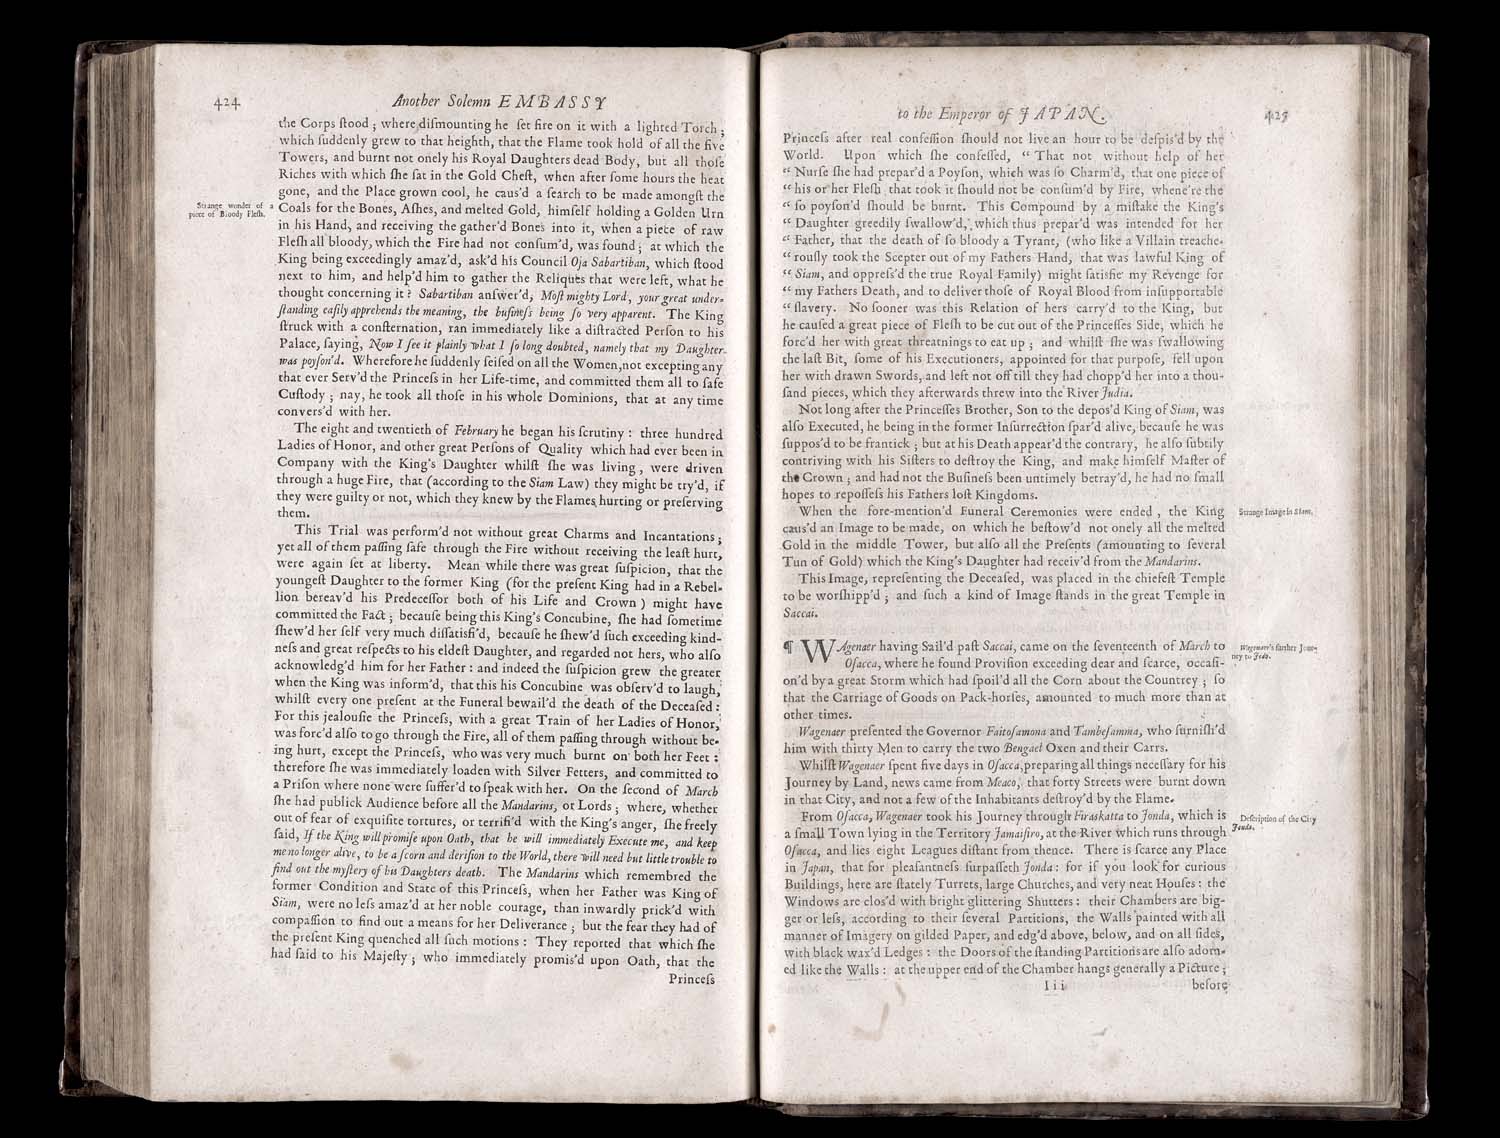 424
Another Solemn EMBASSY
the Corps ſtood ; where diſmounting he ſet fire on it with a lighted Torch ;
which ſuddenly grew to that heighth, that the Flame took hold of all the five
Towers, and burnt not onely his Royal Daughters dead Body, but all thoſe
Riches with which ſhe ſat in the Gold Cheſt, when after ſome hours the heat
gone, and the Place grown cool, he caus'd a ſearch to be made amongſt the
Strange wonder of a
piece of Bloody Fleſh.
Coals for the Bones, Aſhes, and melted Gold, himſelf holding a Golden Urn
in his Hand, and receiving the gather'd Bones into it, when a piece of raw
Fleſh all bloody, which the Fire had not conſum'd, was found ; at which the
King being exceedingly amaz'd, ask'd his Council Oja Sabartiban, which ſtood
next to him, and help'd him to gather the Reliques that were left, what he
thought concerning it ? Sabartiban anſwer'd, Moſt mighty Lord, your great under-
ſtanding eaſily apprehends the meaning, the buſineſs being ſo very apparent. The King
ſtruck with a conſternation, ran immediately like a diſtracted Perſon to his
Palace, ſaying, Now I ſee it plainly what I ſo long doubted, namely that my Daughter
was poyſon'd. Wherefore he ſuddenly ſeiſed on all the Women, not excepting any
that ever Serv'd the Princeſs in her Life-time, and committed them all to ſafe
Cuſtody ; nay, he took all thoſe in his whole Dominions, that at any time
convers'd with her.
The eight and twentieth of February he began his ſcrutiny : three hundred
Ladies of Honor, and other great Perſons of Quality which had ever been in
Company with the King's Daughter whilſt ſhe was living, were driven
through a huge Fire, that (according to the Siam Law) they might be try'd, if
they were guilty or not, which they knew by the Flames hurting or preſerving
them.
This Trial was perform'd not without great Charms and Incantations ;
yet all of them paſſing ſafe through the Fire without receiving the leaſt hurt,
were again ſet at liberty. Mean while there was great ſuſpicion, that the
youngeſt Daughter to the former King (for the preſent King had in a Rebel-
lion bereav'd his Predeceſſor both of his Life and Crown ) might have
committed the Fact ; becauſe being this King's Concubine, ſhe had ſometime
ſhew'd her ſelf very much diſſatisfi'd, becauſe he ſhew'd ſuch exceeding kind-
neſs and great reſpects to his eldeſt Daughter, and regarded not hers, who alſo
acknowledg'd him for her Father : and indeed the ſuſpicion grew the greater
when the King was inform'd, that this his Concubine was obſerv'd to laugh,
whilſt every one preſent at the Funeral bewail'd the death of the Deceaſed :
For this jealouſie the Princeſs, with a great Train of her Ladies of Honor,
was forc'd alſo to go through the Fire, all of them paſſing through without be-
ing hurt, except the Princeſs, who was very much burnt on both her Feet :
therefore ſhe was immediately loaden with Silver Fetters, and committed to
a Priſon where none were ſuffer'd to ſpeak with her. On the ſecond of March
ſhe had publick Audience before all the Mandarins, or Lords ; where, whether
out of fear of exquiſite tortures, or terrifi'd with the King's anger, ſhe freely
ſaid, If the King will promiſe upon Oath, that he will immediately Execute me, and keep
me no longer alive, to be a ſcorn and deriſion to the World, there will need but little trouble to
find out the myſtery of his Daughters death. The Mandarins which remembred the
former Condition and State of this Princeſs, when her Father was King of
Siam, were no leſs amaz'd at her noble courage, than inwardly prick'd with
compaſſion to find out a means for her Deliverance ; but the fear they had of
the preſent King quenched all ſuch motions : They reported that which ſhe
had ſaid to his Majeſty ; who immediately promis'd upon Oath, that the
Princeſs
to the Emperor of JAPAN.
425
Princeſs after real confeſſion ſhould not live an hour to be deſpis'd by the
World. Upon which ſhe confeſſed, “ That not without help of her
“ Nurſe ſhe had prepar'd a Poyſon, which was ſo Charm'd, that one piece of
“ his or her Fleſh that took it ſhould not be conſum'd by Fire, whene're the
“ ſo poyſon'd ſhould be burnt. This Compound by a miſtake the King's
“ Daughter greedily ſwallow'd, which thus prepar'd was intended for her
“ Father, that the death of ſo bloody a Tyrant, (who like a Villain treache-
“ rouſly took the Scepter out of my Fathers Hand, that was lawful King of
“ Siam, and oppreſs'd the true Royal Family) might ſatisfie my Revenge for
“ my Fathers Death, and to deliver thoſe of Royal Blood from inſupportable
“ ſlavery. No ſooner was this Relation of hers carry'd to the King, but
he cauſed a great piece of Fleſh to be cut out of the Princeſſes Side, which he
forc'd her with great threatnings to eat up ; and whilſt ſhe was ſwallowing
the laſt Bit, ſome of his Executioners, appointed for that purpoſe, fell upon
her with drawn Swords, and left not off till they had chopp'd her into a thou-
ſand pieces, which they afterwards threw into the River Judia.
Not long after the Princeſſes Brother, Son to the depos'd King of Siam, was
alſo Executed, he being in the former Inſurrection ſpar'd alive, becauſe he was
ſuppos'd to be frantick ; but at his Death appear'd the contrary, he alſo ſubtily
contriving with his Siſters to deſtroy the King, and make himſelf Maſter of
the Crown ; and had not the Buſineſs been untimely betray'd, he had no ſmall
hopes to repoſſeſs his Fathers loſt Kingdoms.
When the fore-mention'd Funeral Ceremonies were ended , the King
Strange Image in Siam.
caus'd an Image to be made, on which he beſtow'd not onely all the melted
Gold in the middle Tower, but alſo all the Preſents (amounting to ſeveral
Tun of Gold) which the King's Daughter had receiv'd from the Mandarins.
This Image, repreſenting the Deceaſed, was placed in the chiefeſt Temple
to be worſhipp'd ; and ſuch a kind of Image ſtands in the great Temple in
Saccai.
¶ WAgenaer having Sail'd paſt Saccai, came on the ſeventeenth of March to
Wagenaer's farther Jour-
ney to Jedo.
Oſacca, where he found Proviſion exceeding dear and ſcarce, occaſi-
on'd by a great Storm which had ſpoil'd all the Corn about the Countrey ; ſo
that the Carriage of Goods on Pack-horſes, amounted to much more than at
other times.
Wagenaer preſented the Governor Faitoſamona and Tambeſamma, who furniſh'd
him with thirty Men to carry the two Bengael Oxen and their Carrs.
Whilſt Wagenaer ſpent five days in Oſacca, preparing all things neceſſary for his
Journey by Land, news came from Meaco, that forty Streets were burnt down
in that City, and not a few of the Inhabitants deſtroy'd by the Flame.
From Oſacca, Wagenaer took his Journey through Firaskatta to Jonda, which is
Deſcription of the City
Jonda.
a ſmall Town lying in the Territory Jamaiſiro, at the River which runs through
Oſacca, and lies eight Leagues diſtant from thence. There is ſcarce any Place
in Japan, that for pleaſantneſs ſurpaſſeth Jonda : for if you look for curious
Buildings, here are ſtately Turrets, large Churches, and very neat Houſes : the
Windows are clos'd with bright glittering Shutters : their Chambers are big-
ger or leſs, according to their ſeveral Partitions, the Walls painted with all
manner of Imagery on gilded Paper, and edg'd above, below, and on all ſides,
with black wax'd Ledges : the Doors of the ſtanding Partitions are alſo adorn-
ed like the Walls : at the upper end of the Chamber hangs generally a Picture ;
Iii
before